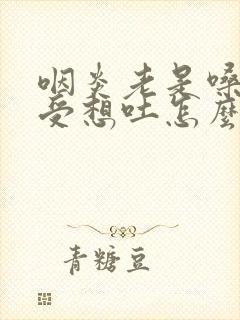 咽炎老是嗓
受想吐怎麼
青糖豆